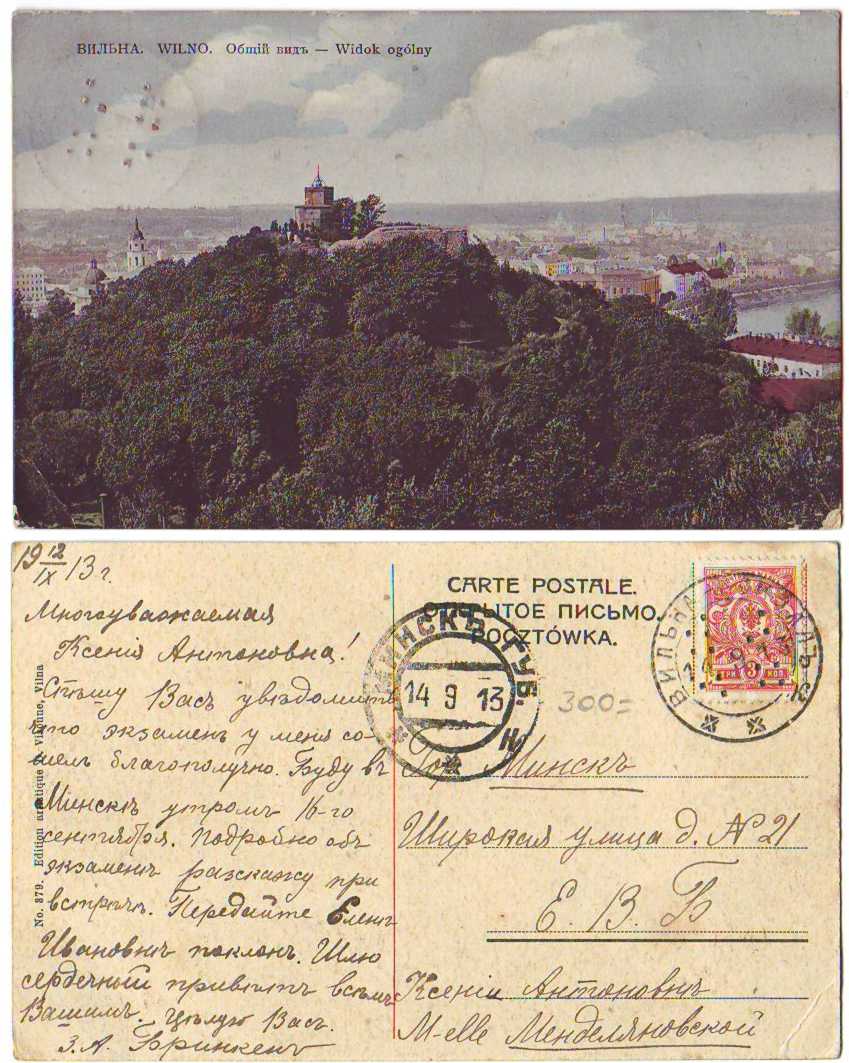 ВИЛЬНА. WILNO. Общій видъ — Widok ogólny
19 12/IX 13 г.
Многоуважаемая
Ксенія Антоновна!
Спѣшу Васъ увѣдомить
что экзаменъ у меня со-
шелъ благополучно. Буду въ
Минскѣ утромъ 16-го
сентября. Подробно объ
экзаменѣ разскажу при
встрѣчѣ. Передайте Еленѣ
Ивановнѣ поклонъ. Шлю
сердечный привѣтъ всѣмъ
Вашимъ. Цѣлую Васъ.
З. А. Бринкенъ
No. 379. Edition artistique Vilna
CARTE POSTALE.
ОТКРЫТОЕ ПИСЬМО.
POCZTÓWKA.
МИНСКЪ ГУБ.
14 9 13
ВИЛЬНА ВОКЗАЛЪ
3
300=
Гор. Минскъ
Широкая улица д. № 21
Е. В. Б
Ксеніи Антоновнѣ
M-elle Менделяновской